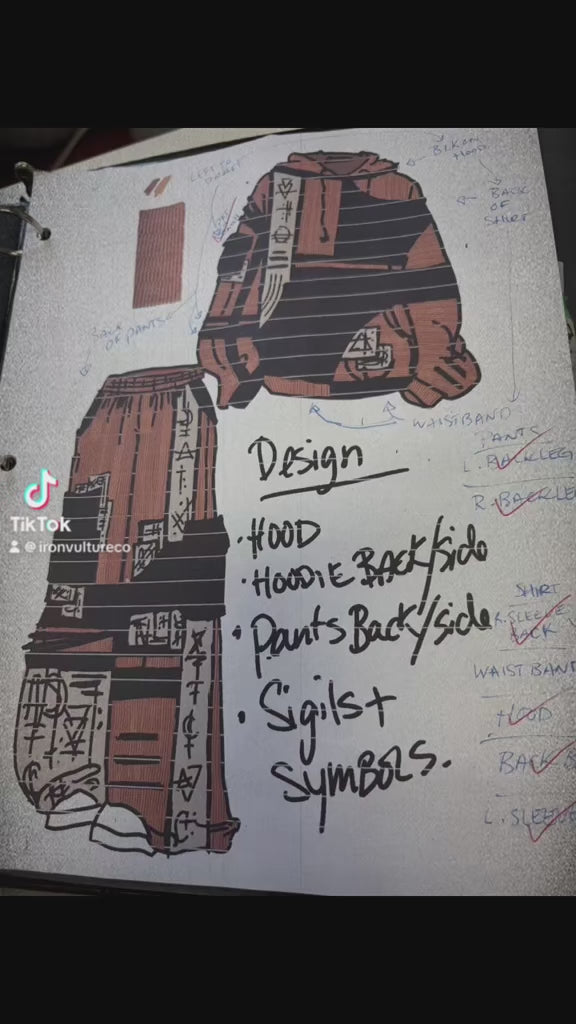 BLK ON
HOOD
BACK
OF
SHIRT
LEFT TO
BACK
OF PANTS
WAISTBAND
PANTS
L. BACKLEG
R. BACKLE
Design
• HOOD
• HOODIE Back/side
• Pants Back/side
• Sigils +
Symbols.
SHIRT
R. SLEEVE
BACK
WAIST BAND
HOOD
BACK
L. SLEEVE
TikTok
@ironvultureco